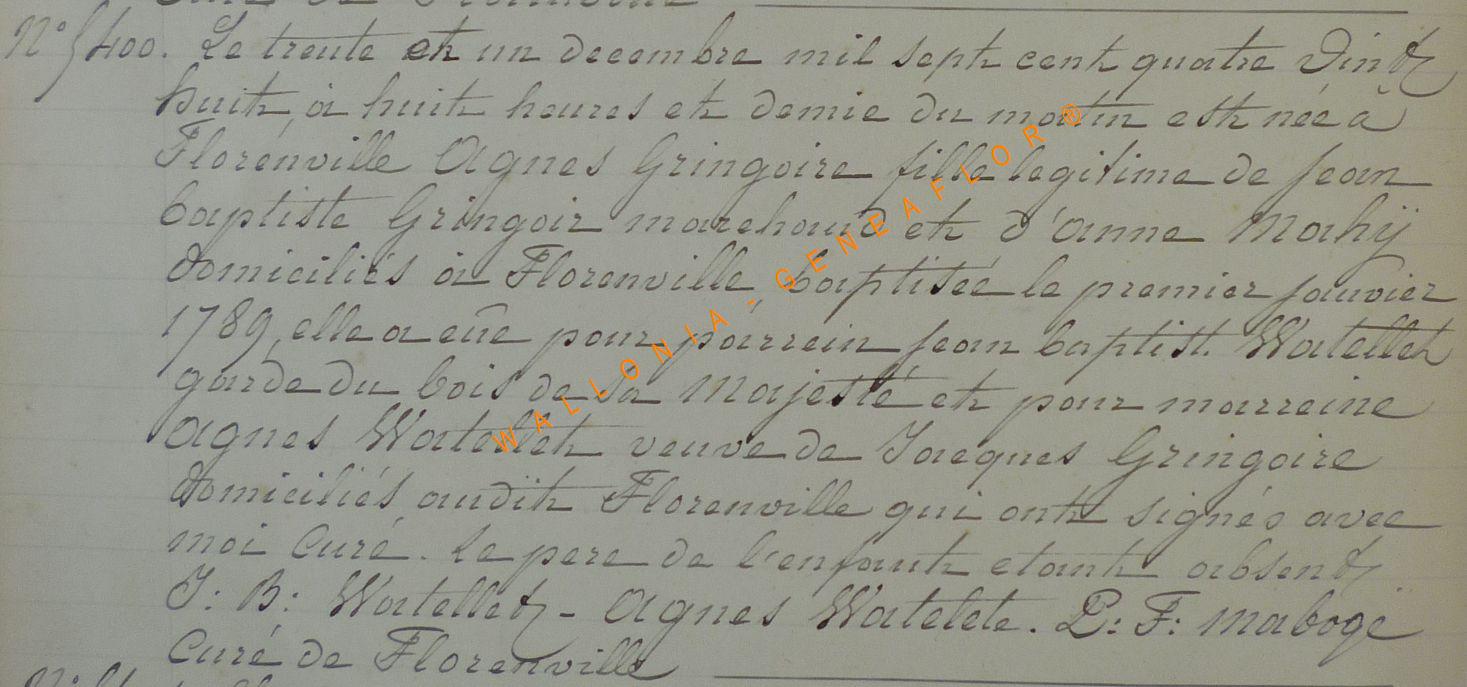 N° 5400. Le trente et un decembre mil sept cent quatre vingt
huit, à huit heures et demie du matin est née à
Florenville Agnes Gringoire fille legitime de Jean
baptiste Gringoir marchand et d'anne Mahij
domiciliés à Florenville, baptisée le premier janvier
1789, elle a eüe pour parrein jean baptist. Watellet
garde du bois de sa Majesté et pour marreine
Agnes Watellet veuve de Jacques Gringoire
domiciliés audit Florenville qui ont signés avec
moi Curé. Le pere de l'enfant etant absent
J: B: Watellet - Agnes Watelete. P: F: Mabogé
Curé de Florenville
WALLONIA - GENEAFLOR ®